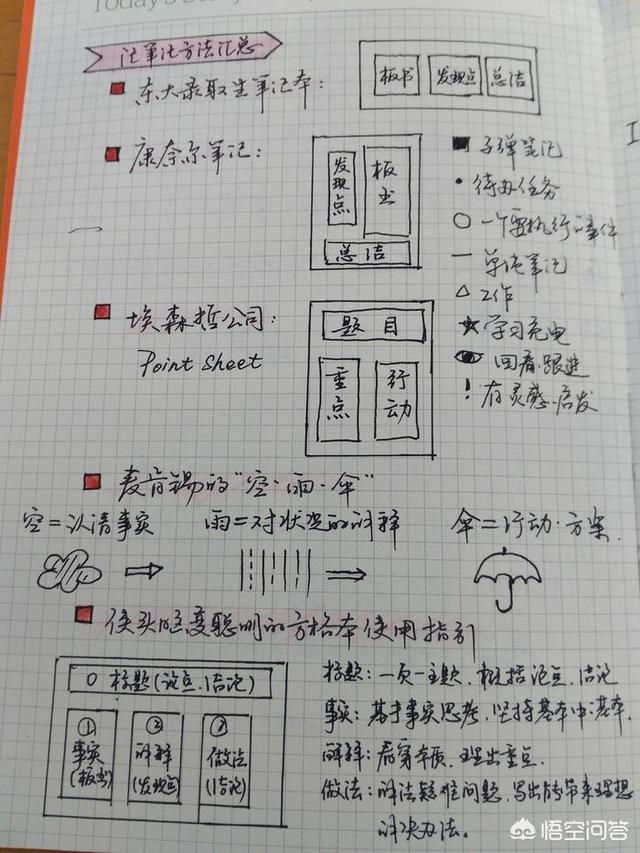 Today's
记笔记方法汇总
东大录取生笔记本：
板书 发现点 总结
康奈尔笔记：
发现点 板书
总结
子弹笔记
待办任务
一个要执行的事件
单纯笔记
工作
学习充电
回看.跟进
! 有灵感.启发
埃森哲公司：
Point Sheet
题目
重点 行动
麦肯锡的“空·雨·伞”
空=认清事实 雨=对状况的解释 伞=行动·方案.
使头脑变聪明的方格本使用指引
0 标题(论点.结论)
① 事实(板书)
② 解释
③ 做法(结论)
标题：一页一主题.概括论点.结论
事实：基于事实思考.坚持基本中基本.
解释：看穿本质.理出重点.
做法：解法疑难问题.写出能带来理想
解决办法。
悟空问答